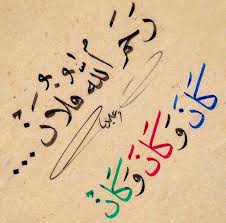 رَحِمَ اللهُ فلانَ....
كَانَ وَكَانَ وَكَانَ